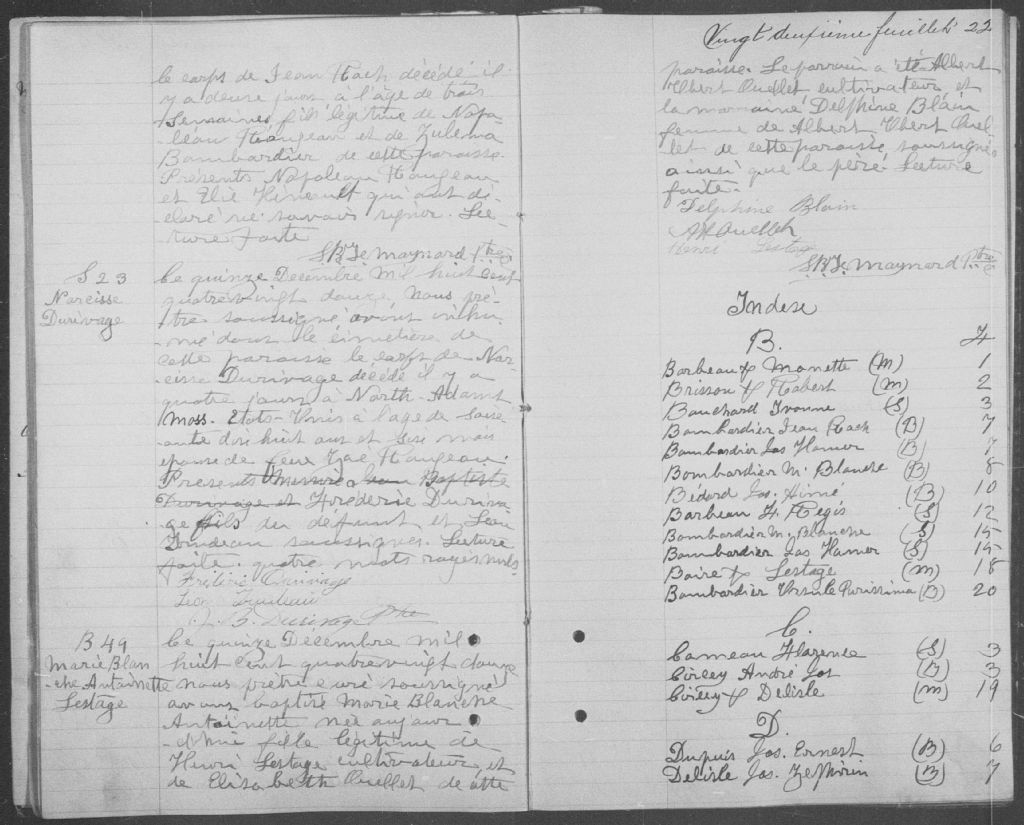 le corps de Jean Rach décédé il
y a deux jours à l'âge de trois
semaines fils légitime de Napo-
léon Rougeau et de Zulema
Bombardier de cette paroisse.
Présents Napoleon Rougeau
et Elie Hénault qui ont dé-
claré ne savoir signer. Lec-
ture faite
J.B.L. Maynard Ptre
S 23
Narcisse
Durivage
Le quinze Decembre mil huit cent
quatrevingt douze, nous prê-
tre soussigné avons inhu-
mé dans le cimetière de
cette paroisse le corps de Nar-
cisse Durivage décédé il y a
quatre jours à North-Adams
Mass. Etats-Unis à l'age de soix-
ante dix huit ans et six mois
epoux de feue Zoé Rougeau.
Presents Messire Jean Baptiste
Durivage et Frederic Duriva-
ge fils du défunt et Leon
Trudeau soussignés. Lecture
faite. quatre mots rayés nuls
Frédéric Durivage
Leon Trudeau
J. B. Durivage Ptre
B 49
Marie Blan
che Antoinette
Lestage
Le quinze Décembre mil
huit cent quatrevingt douze
nous prêtre curé soussigné
avons baptisé Marie Blanche
Antoinette née aujour-
d'hui fille légitime de
Henri Lestage cultivateur et
de Elisabeth Ouellet de cette
Vingt deuxieme feuillet 22
paroisse. Le parrain a été Albert
Ubert Ouellet cultivateur et
la marraine Delphine Blain
femme de Albert Ubert Ouel-
let de cette paroisse soussignés
ainsi que le père. Lecture
faite.
Delphine Blain
AH Ouellet
Henri Lestage
J.B.L. Maynard Ptre
Index
B. F
Barbeau & Monette (M) 1
Brisson & Robert (M) 2
Bouchard Ivonne (S) 3
Bombardier Jean Rach (B) 7
Bombardier Jos Homer (B) 7
Bombardier M. Blanche (B) 8
Bédard Jos. Aimé (B) 10
Barbeau F. Régis (S) 12
Bombardier M. Blanche (S) 15
Bombardier Jos Homer (S) 15
Boire & Lestage (M) 18
Bombardier Ursule Purissima (B) 20
C.
Comeau Florence (S) 3
Circey André Jos (B) 3
Circey & Delisle (M) 19
D.
Dupuis Jos. Ernest (B) 6
Delisle Jos. Zephirin (B) 7